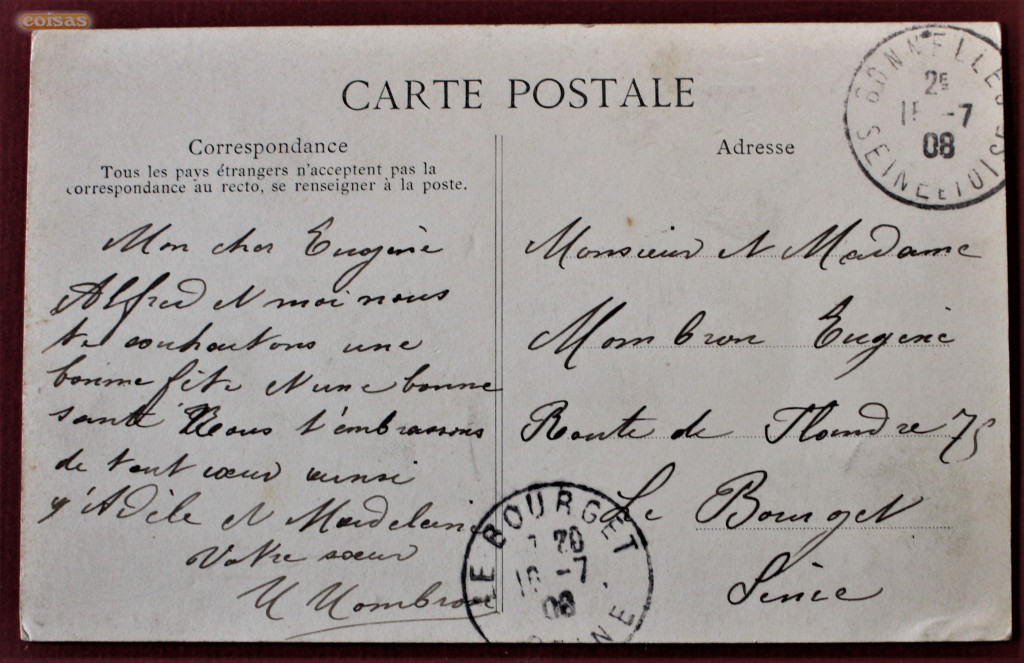 coisas
CARTE POSTALE
BONNELLES
2E
-7
08
SEINE ET OISE
Correspondance
Tous les pays étrangers n'acceptent pas la
correspondance au recto, se renseigner à la poste.
Adresse
Mon cher Eugène
Alfred et moi nous
te souhaitons une
bonne fête et une bonne
santé Nous t'embrassons
de tout cœur ainsi
q'Adèle et Madelein
Votre sœur
Mombron
Monsieur et Madame
Mombron Eugène
Route de Flandre 75
Le Bourget
Seine
LE BOURGET
20
-7
08
SEINE